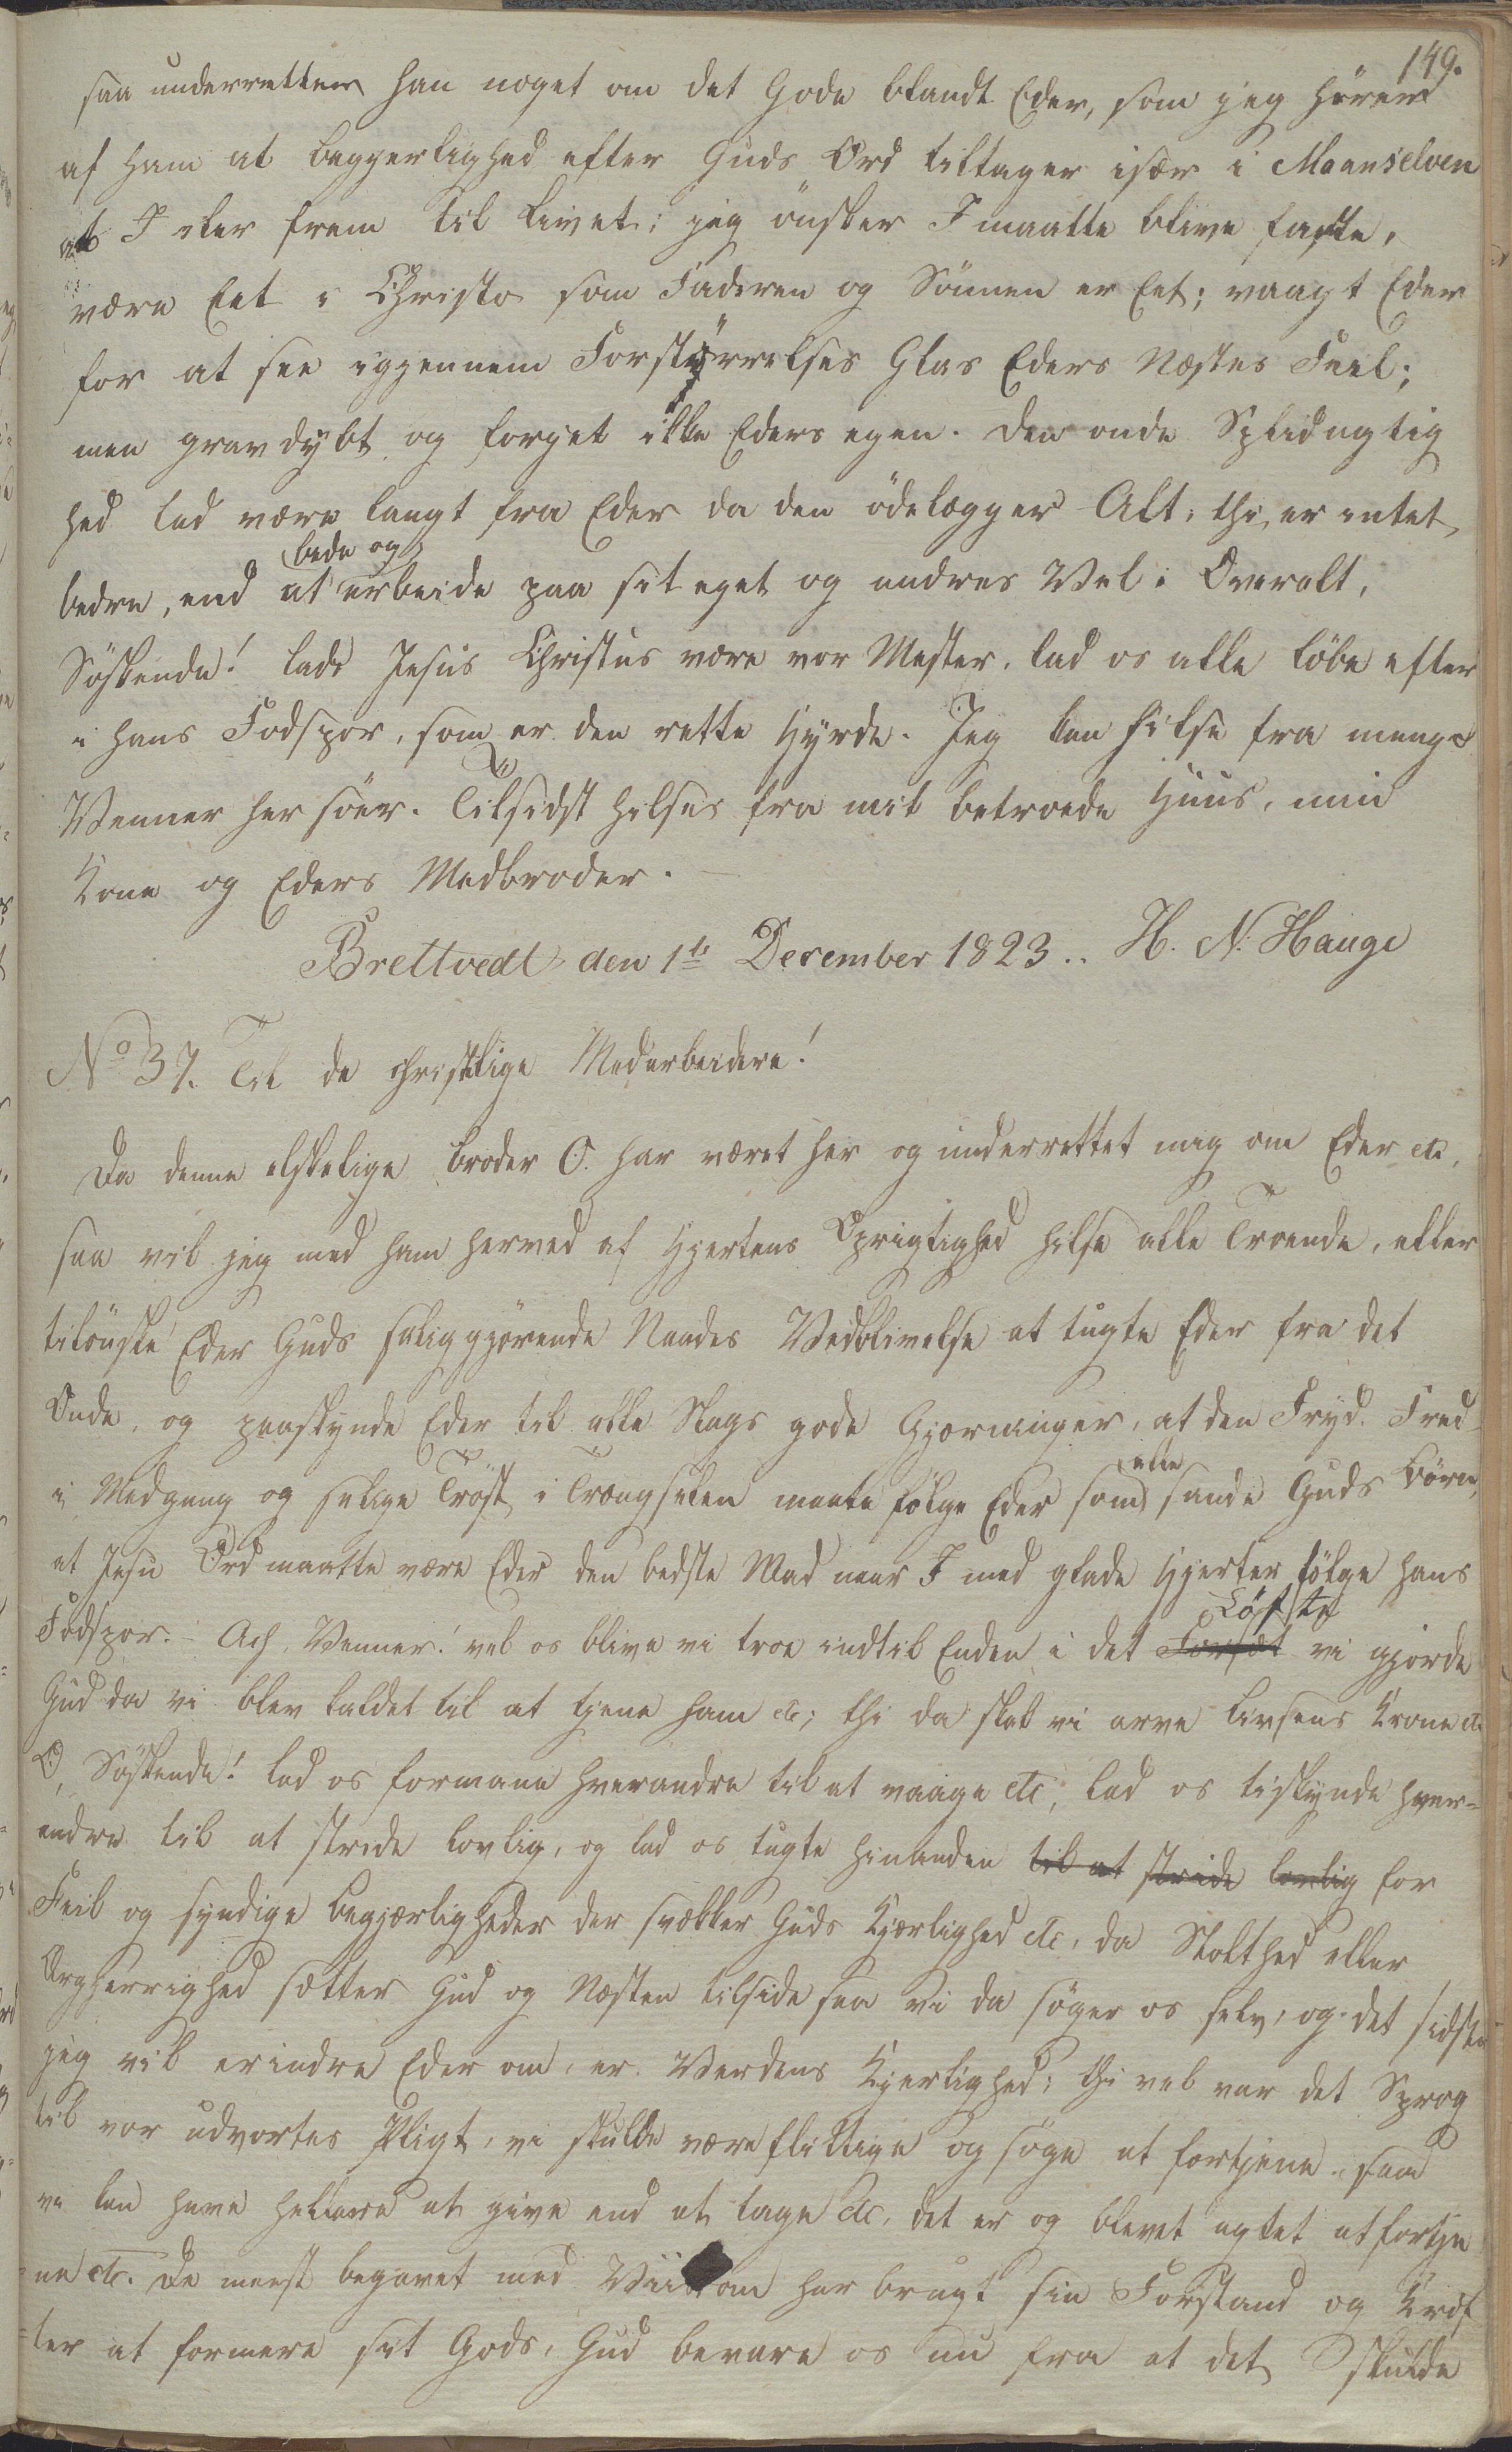 149.
saa underretter han noget om det Gode blandt Eder, som jeg hører
af ham at Begjerlighed efter Guds Ord tiltager især i Maanselven
at I iler frem til Livet; jeg ønsker I maatte blive faste,
være Eet i Christo som Faderen og Sønnen er Eet; vaagt Eder
for at see igjennem Forstørrelses Glas Eders Næstes Feil;
men grav dybt og forget ikke Eders egen. Den onde Splidagtig
hed lad være langt fra Eder da den ødelægger Alt, thi er intet,
bede og
bedre, end at arbeide paa sit eget og andres Vel i Overalt,
Søskende! lade Jesus Christus være vor Mester, lad os alle løbe efter
i hans Fodspor, som er den rette Hyrde. Jeg kan hilse fra mange
Venner her sør. Tilsidst hilses fra mit betroede Huus, min
Kone og Eders Medbroder.
Brettvedt den 1te December 1823.. H. N. Hauge
No 37. Til de christelige Medarbeidere!
Da denne elskelige Broder O. har været her og underrettet mig om Eder etc,
saa vil jeg med ham herved af Hjertens Oprigtighed hilse alle Troende, eller
tilønske Eder Guds saliggjørende Naades Vedblivelse at tugte Eder fra det
Onde, og paaskynde Eder til alle Slags gode Gjerninger, at den Fryd. Fred
i Medgang og salige Trøst i Trængselen maate følge Eder som alle sande Guds Børn,
at Jesu Ord maatte være Eder den bedste Mad naar I med glade Hjerter følge hans
Løfte
Fodspor. – Ach, Venner! vel os blive vi troe indtil Enden i det Forsæt vi gjorde
Gud da vi blev kaldet til at tjene ham etc; thi da skal vi arve Livsens Krone etc
O, Søskende! lad os formane hverandre til at vaage etc, lad os tilskynde hver=
andre til at stride lovlig, og lad os tugte hinanden til at stride lovlig for
Feil og syndige Begjærligheder der svækker Guds Kjærlighed etc, da Stolthed eller
Ærgherrighed sætter Gud og Næsten tilside saa vi da søger os selv, og det sidste
jeg vil erindre Eder om, er Verdens Kjerlighed; thi vel var det Sprog
til vor udvortes Pligt, vi skulde være flittige og søge at fortjene, saa
vi kan have hellere at give end at tage etc, det er og blevet agtet at fortje
=ne etc. De meest begavet med Viisdom har brugt sin Forstand og Kræf
=ter at formere sit Gods, Gud bevare os nu fra at det skulde